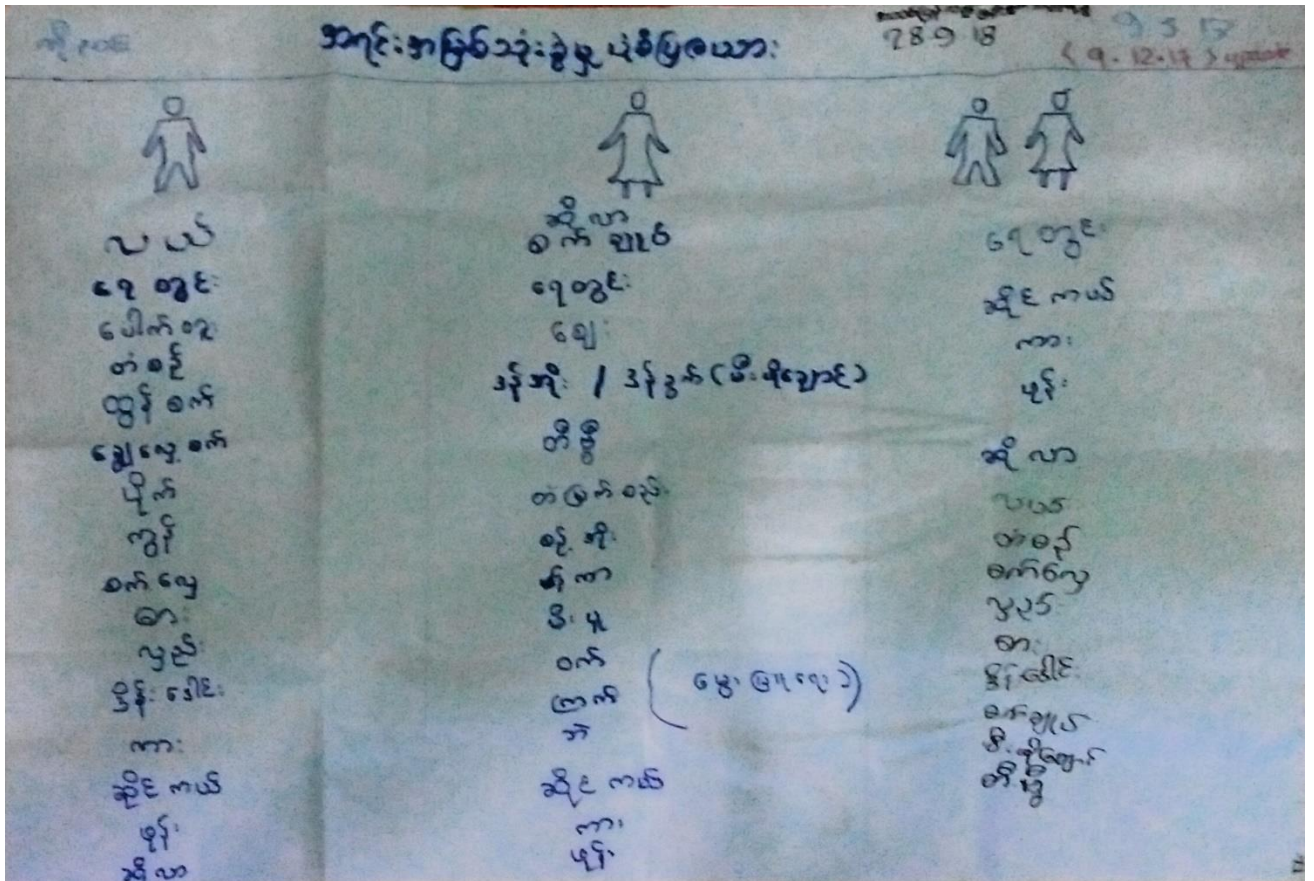 အရင်းအမြစ်သုံးစွဲမှု ပုံစံပြဇယား
28 9 18
9 5 17
( 9.12.17 ) update
လယ်
ရေ တွင်း
ပေါက်တူး
တံစဉ်
ထွန်စက်
ချွေလှေ့စက်
ပိုက်
ကွန်
စက်လှေ
ဓား
လှည်း
ဒိုန်းဒေါင်း
ကား
ဆိုင်ကယ်
ဖုန်း
ဆိုလာ
ဆိုလာ
စက်ချုပ်
ရေတွင်း
ချေး
ဒန်အိုး / ဒန်ခွက် (မီးဖိုချောင်)
တီဗွီ
တံမြက်စည်း
စဉ့်အိုး
ကတ်
မီးပူ
ဝက်
ကြက်
ဘဲ
(မွေးမြူရေး)
ဆိုင်ကယ်
ကား
ဖုန်း
ရေတွင်း
ဆိုင်ကယ်
ကား
ဖုန်း
ဆိုလာ
လယ်
တံစဉ်
စက်လှေ
လှည်း
ဓား
ဒိုန်းဒေါင်း
စက်ချုပ်
မီးဖိုချောင်
တီဗွီ